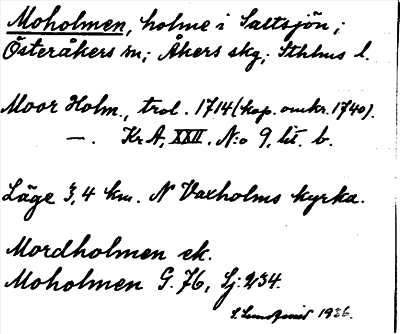 Moholmen, holme i Saltsjön,;
Österåkers sn; Åkers skg; Sthlms l.
Moor Holm., trol. 1714 (kop. omkr. 1740).
—. Kr A, XXII. N:o 9, lit. b.
Läge 3,4 km. N Vaxholms kyrka.
Mordholmen ek.
Moholmen G. 76, Lj: 234.
1936.